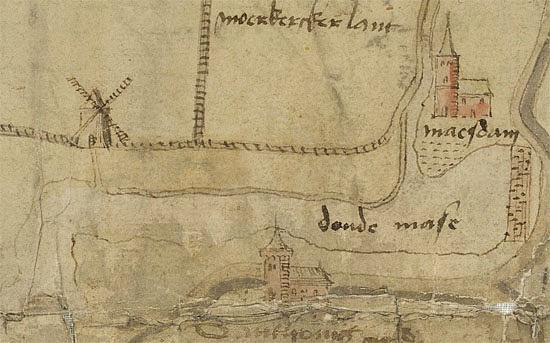 moerkercker lant
maesdam
doude mase